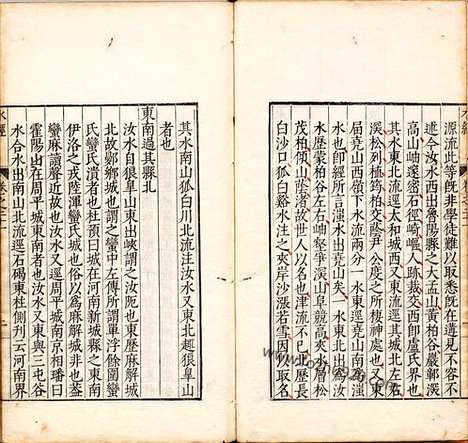 源流此等旣非難以取悉旣在逕見不容不
述今汝水西出魯陽縣之大盂山黃柏谷巖鄣深
高山岫邃密石徑崎嶇人跡裁交西卽盧氏界也
其水東北流逕太和城西又東流逕其城北左右
深松列植筠柏交蔭尹公度之所棲神處也又東
屆堯山西嶺下水流兩分一水東逕堯山南爲滍
水也卽經所言滍水出堯山矣一水東北出爲汝
水歷蒙柏谷左右岫壑爭深山阜競高夾水層松
茂柏傾山蔭渚故世人以名也津流不已北歷長
白沙口狐白谿水注之夾岸沙漲若雪因以取名
其水南出狐白川北流注汝水汝水又東北趣狼皐山
者也
東南過其縣北
汝水自狼皐山東出峽謂之汝阨也東歷麻解城
北故鄤鄉城也謂之蠻中左傳所謂單浮餘圍蠻
氏蠻氏潰者也杜預曰城在河南新城縣之東南
伊洛之戎陸渾蠻氏城也俗以爲麻解城非也蓋
蠻麻讀聲近故也汝水又逕周平城南京相璠曰
霍陽山在周平城東南者也汝水又東與三屯谷
水合水出南山北流逕石碣東柱側刊云河南界